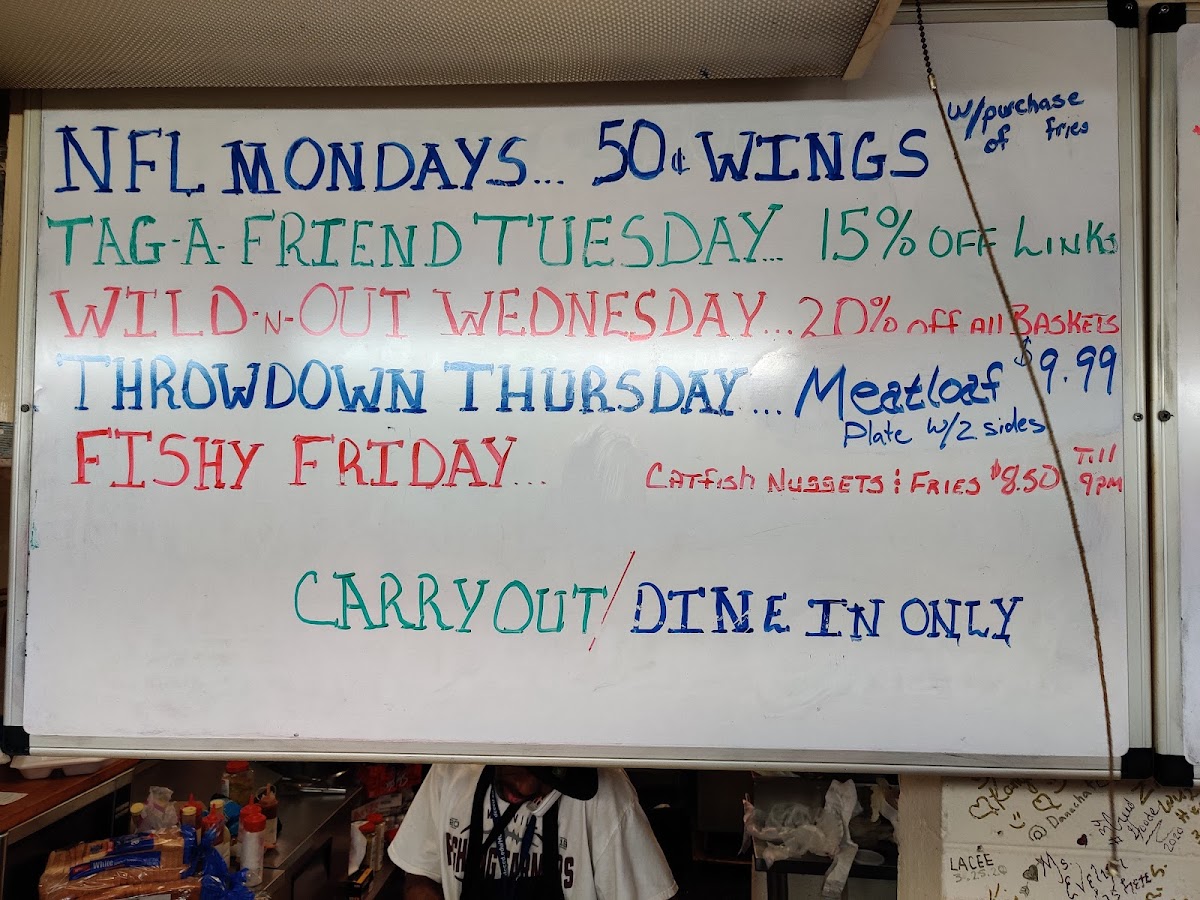 NFL MONDAYS... 50¢ WINGS w/purchase of fries
TAG-A-FRIEND TUESDAY... 15% OFF LINKS
WILD-N-OUT WEDNESDAY... 20% off All BASKETS
THROWDOWN THURSDAY... Meatloaf $9.99
Plate w/2 sides
FISHY FRIDAY... CATfish NUGGETS & FRIES $8.50 Till 9pm
CARRYOUT/DINE IN ONLY
White
Danacha
LACEE
3.25.20
Ms.
Evelyn
2020